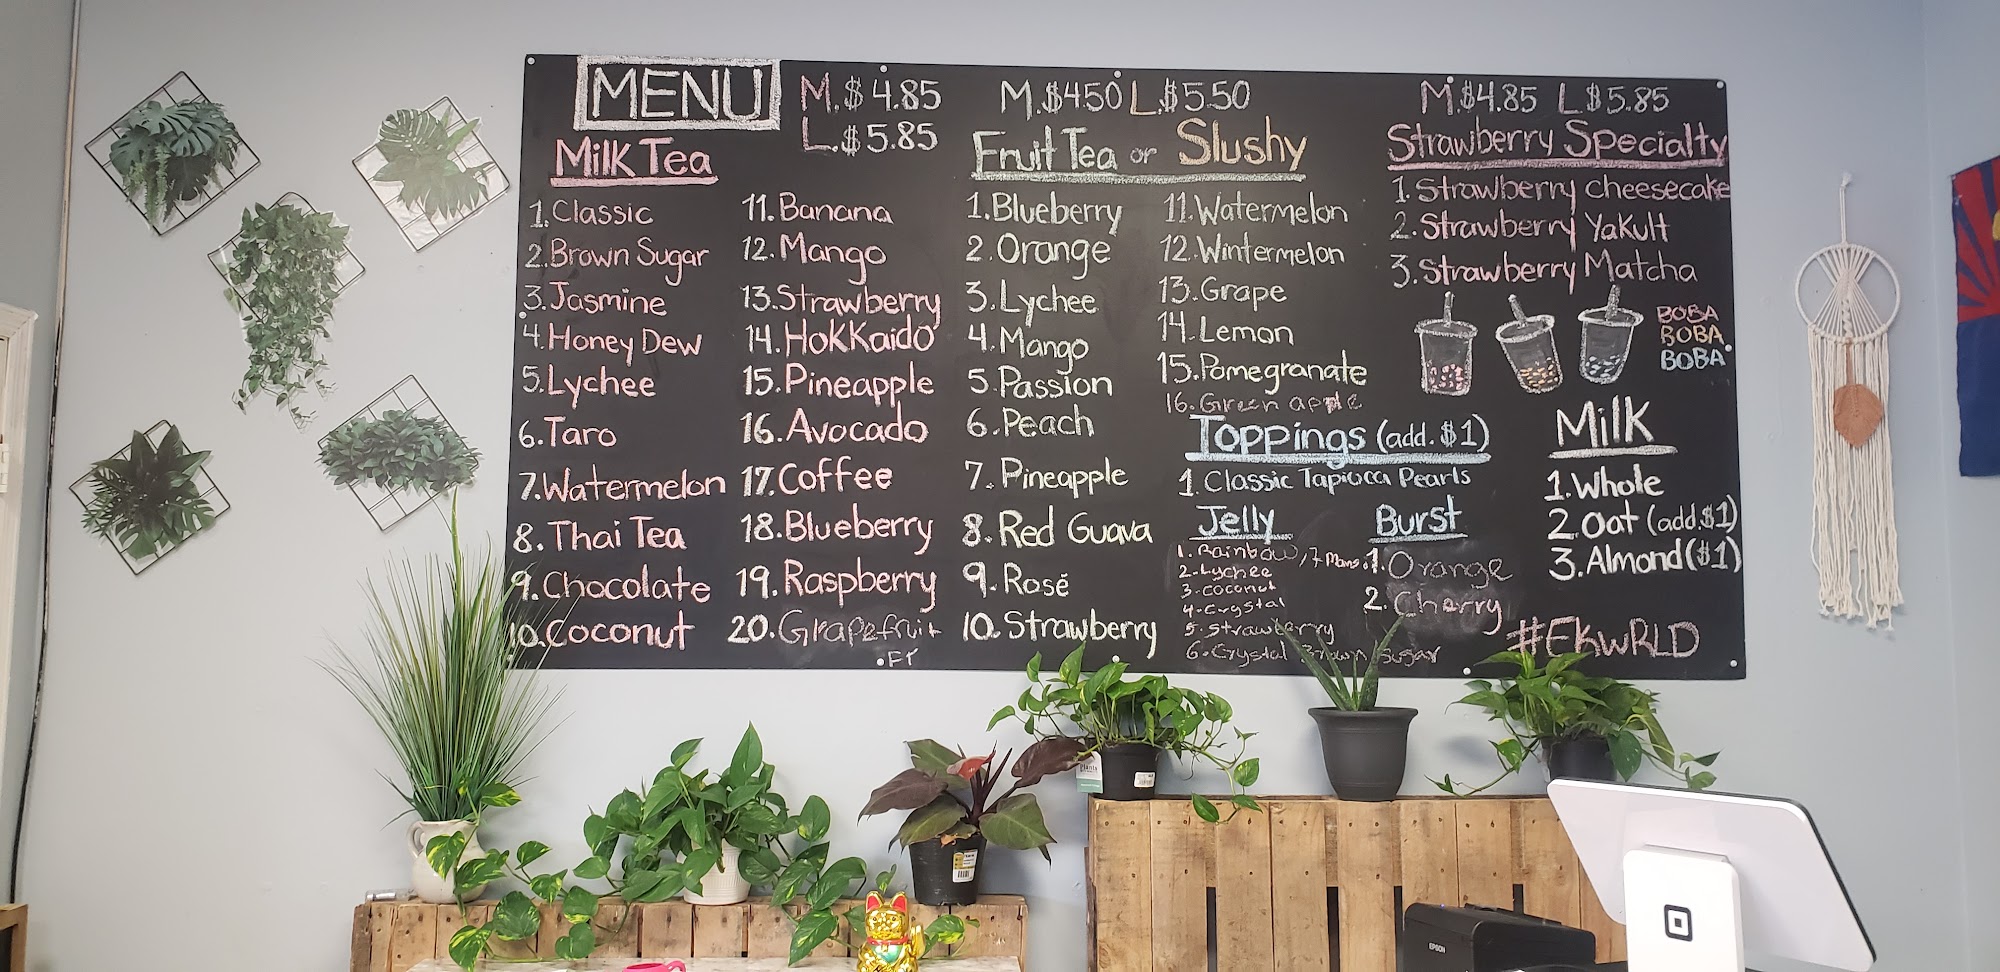 MENU
M.$4.85
L.$5.85
Milk Tea
1.Classic
2.Brown Sugar
3.Jasmine
4.Honey Dew
5.Lychee
6.Taro
7.Watermelon
8.Thai Tea
9.Chocolate
10.Coconut
11.Banana
12.Mango
13.Strawberry
14.Hokkaido
15.Pineapple
16.Avocado
17.Coffee
18.Blueberry
19.Raspberry
20.Grapefruit
.FT
M.$4.50 L.$5.50
Fruit Tea or Slushy
1.Blueberry
2.Orange
3.Lychee
4.Mango
5.Passion
6.Peach
7.Pineapple
8.Red Guava
9.Rosé
10.Strawberry
11.Watermelon
12.Wintermelon
13.Grape
14.Lemon
15.Pomegranate
16.Green apple
Toppings (add.$1)
1.Classic Tapioca Pearls
Jelly
1.Rainbow, 7 Mango
2.Lychee
3.coconut
4.crystal
5.strawberry
6.Crystal Brown Sugar
Burst
1.Orange
2.Cherry
M.$4.85 L$5.85
Strawberry Specialty
1.Strawberry cheesecake
2.Strawberry Yakult
3.Strawberry Matcha
BOBA
BOBA
BOBA
Milk
1.Whole
2.Oat (add.$1)
3.Almond($1)
#EKWRLD
EPSON